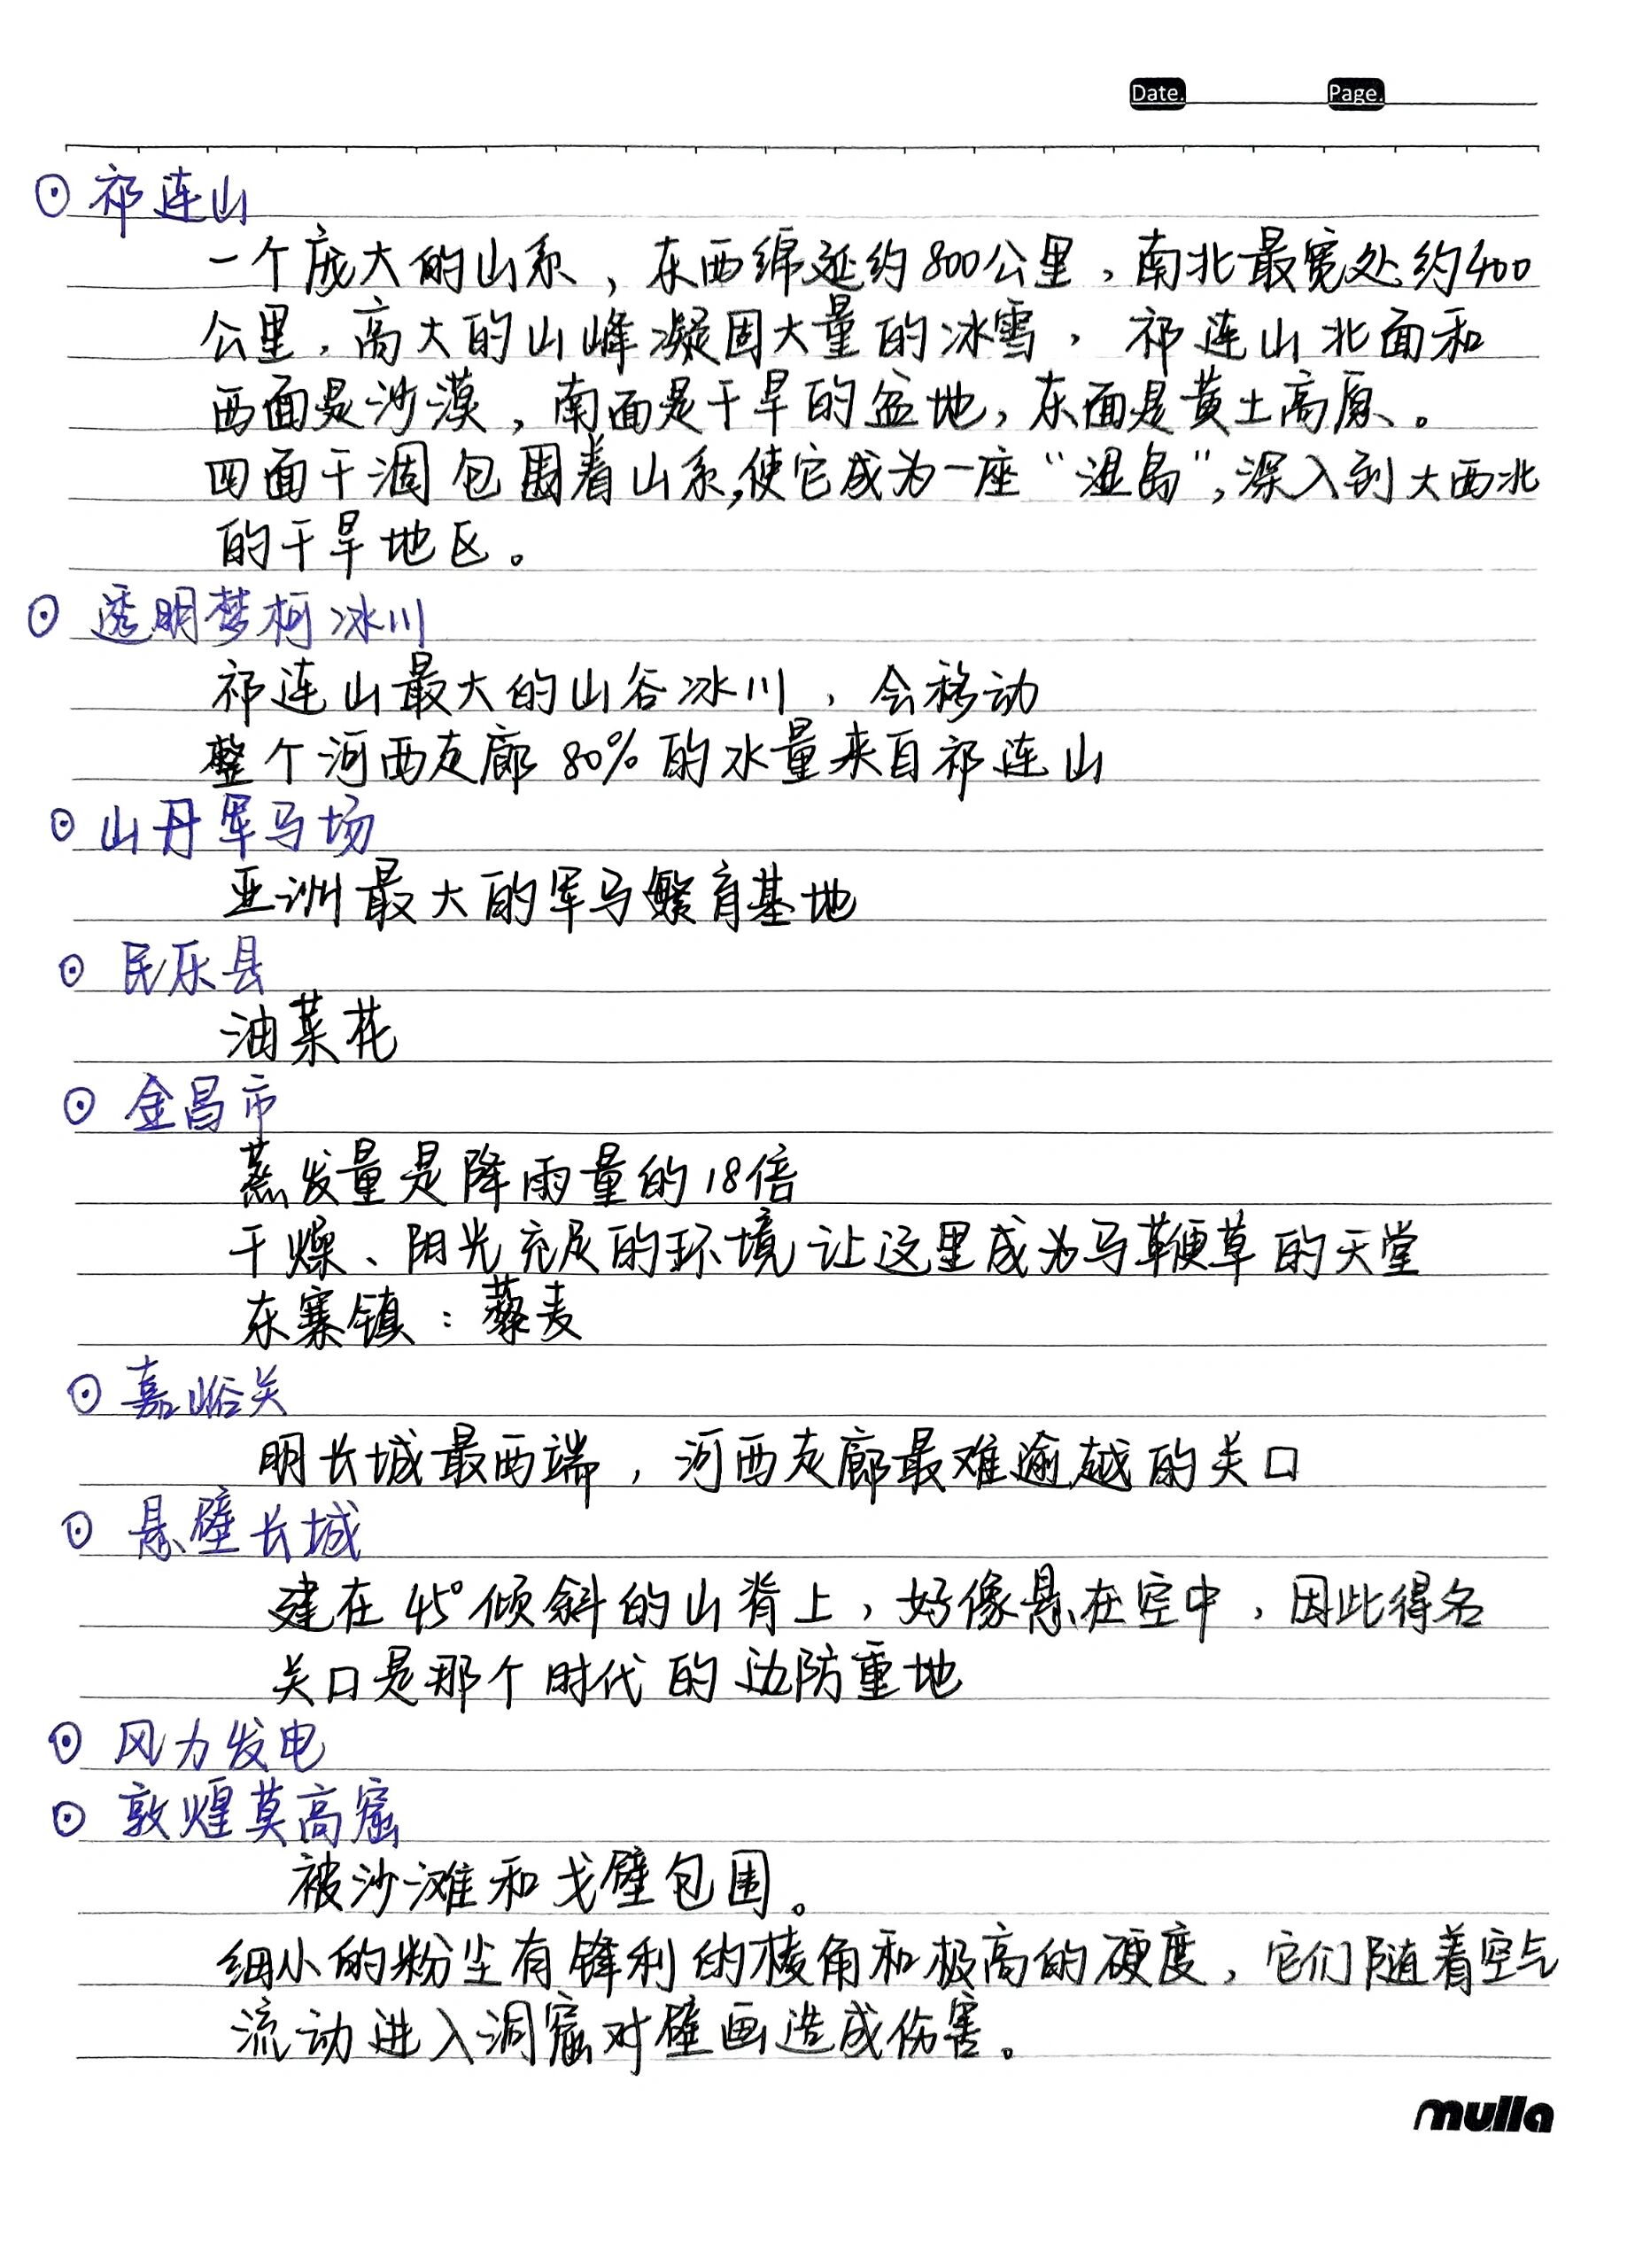 Date. Page.
⊙ 祁连山
一个庞大的山系，东西绵延约800公里，南北最宽处约400
公里，高大的山峰凝固大量的冰雪，祁连山北面和
西面是沙漠，南面是干旱的盆地，东面是黄土高原。
四面干涸包围着山系，使它成为一座“湿岛”，深入到大西北
的干旱地区。
⊙ 透明梦柯冰川
祁连山最大的山谷冰川，会移动
整个河西走廊80%的水量来自祁连山
⊙ 山丹军马场
亚洲最大的军马繁育基地
⊙ 民乐县
油菜花
⊙ 金昌市
蒸发量是降雨量的18倍
干燥、阳光充足的环境让这里成为马鞭草的天堂
东寨镇：藜麦
⊙ 嘉峪关
明长城最西端，河西走廊最难逾越的关口
⊙ 悬壁长城
建在45°倾斜的山脊上，好像悬在空中，因此得名
关口是那个时代的边防重地
⊙ 风力发电
⊙ 敦煌莫高窟
被沙滩和戈壁包围。
细小的粉尘有锋利的棱角和极高的硬度，它们随着空气
流动进入洞窟对壁画造成伤害。
mulla